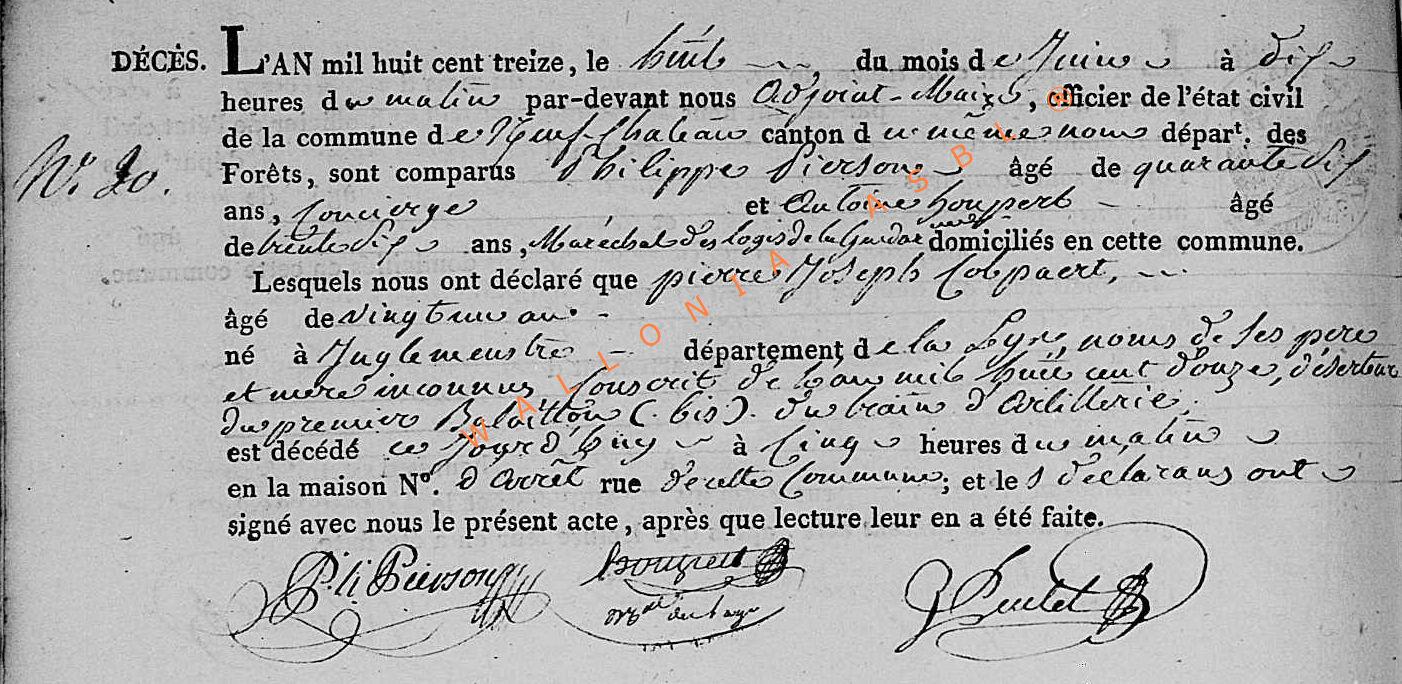 DÉCÈS. L'AN mil huit cent treize, le huit du mois de Juin à dix
heures du matin par-devant nous Adjoint-Maire, officier de l'état civil
de la commune de Neufchateau canton du même nom départ. des
N.° 20. Forêts, sont comparus Philippe Pierson âgé de quarante dix
ans, Concierge et Antoine houpert âgé
de trente dix ans, Maréchal des logis de la Gendar domiciliés en cette commune.
Lesquels nous ont déclaré que pierre Joseph Colpaert,
âgé de Vingt un ans
né à Inglemunstre département de la Lys, noms de ses pere
et mere inconnus, Conscrit de l'an mil huit cent douze, déserteur
du premier Bataillon (bis) du train d'Artillerie,
est décédé ce jourd'huy à Cinq heures du matin
en la maison N°. d'Arrêt rue de cette Commune; et les déclarans ont
signé avec nous le présent acte, après que lecture leur en a été faite.
Ph Pierson houpert
WALLONIA ASBL